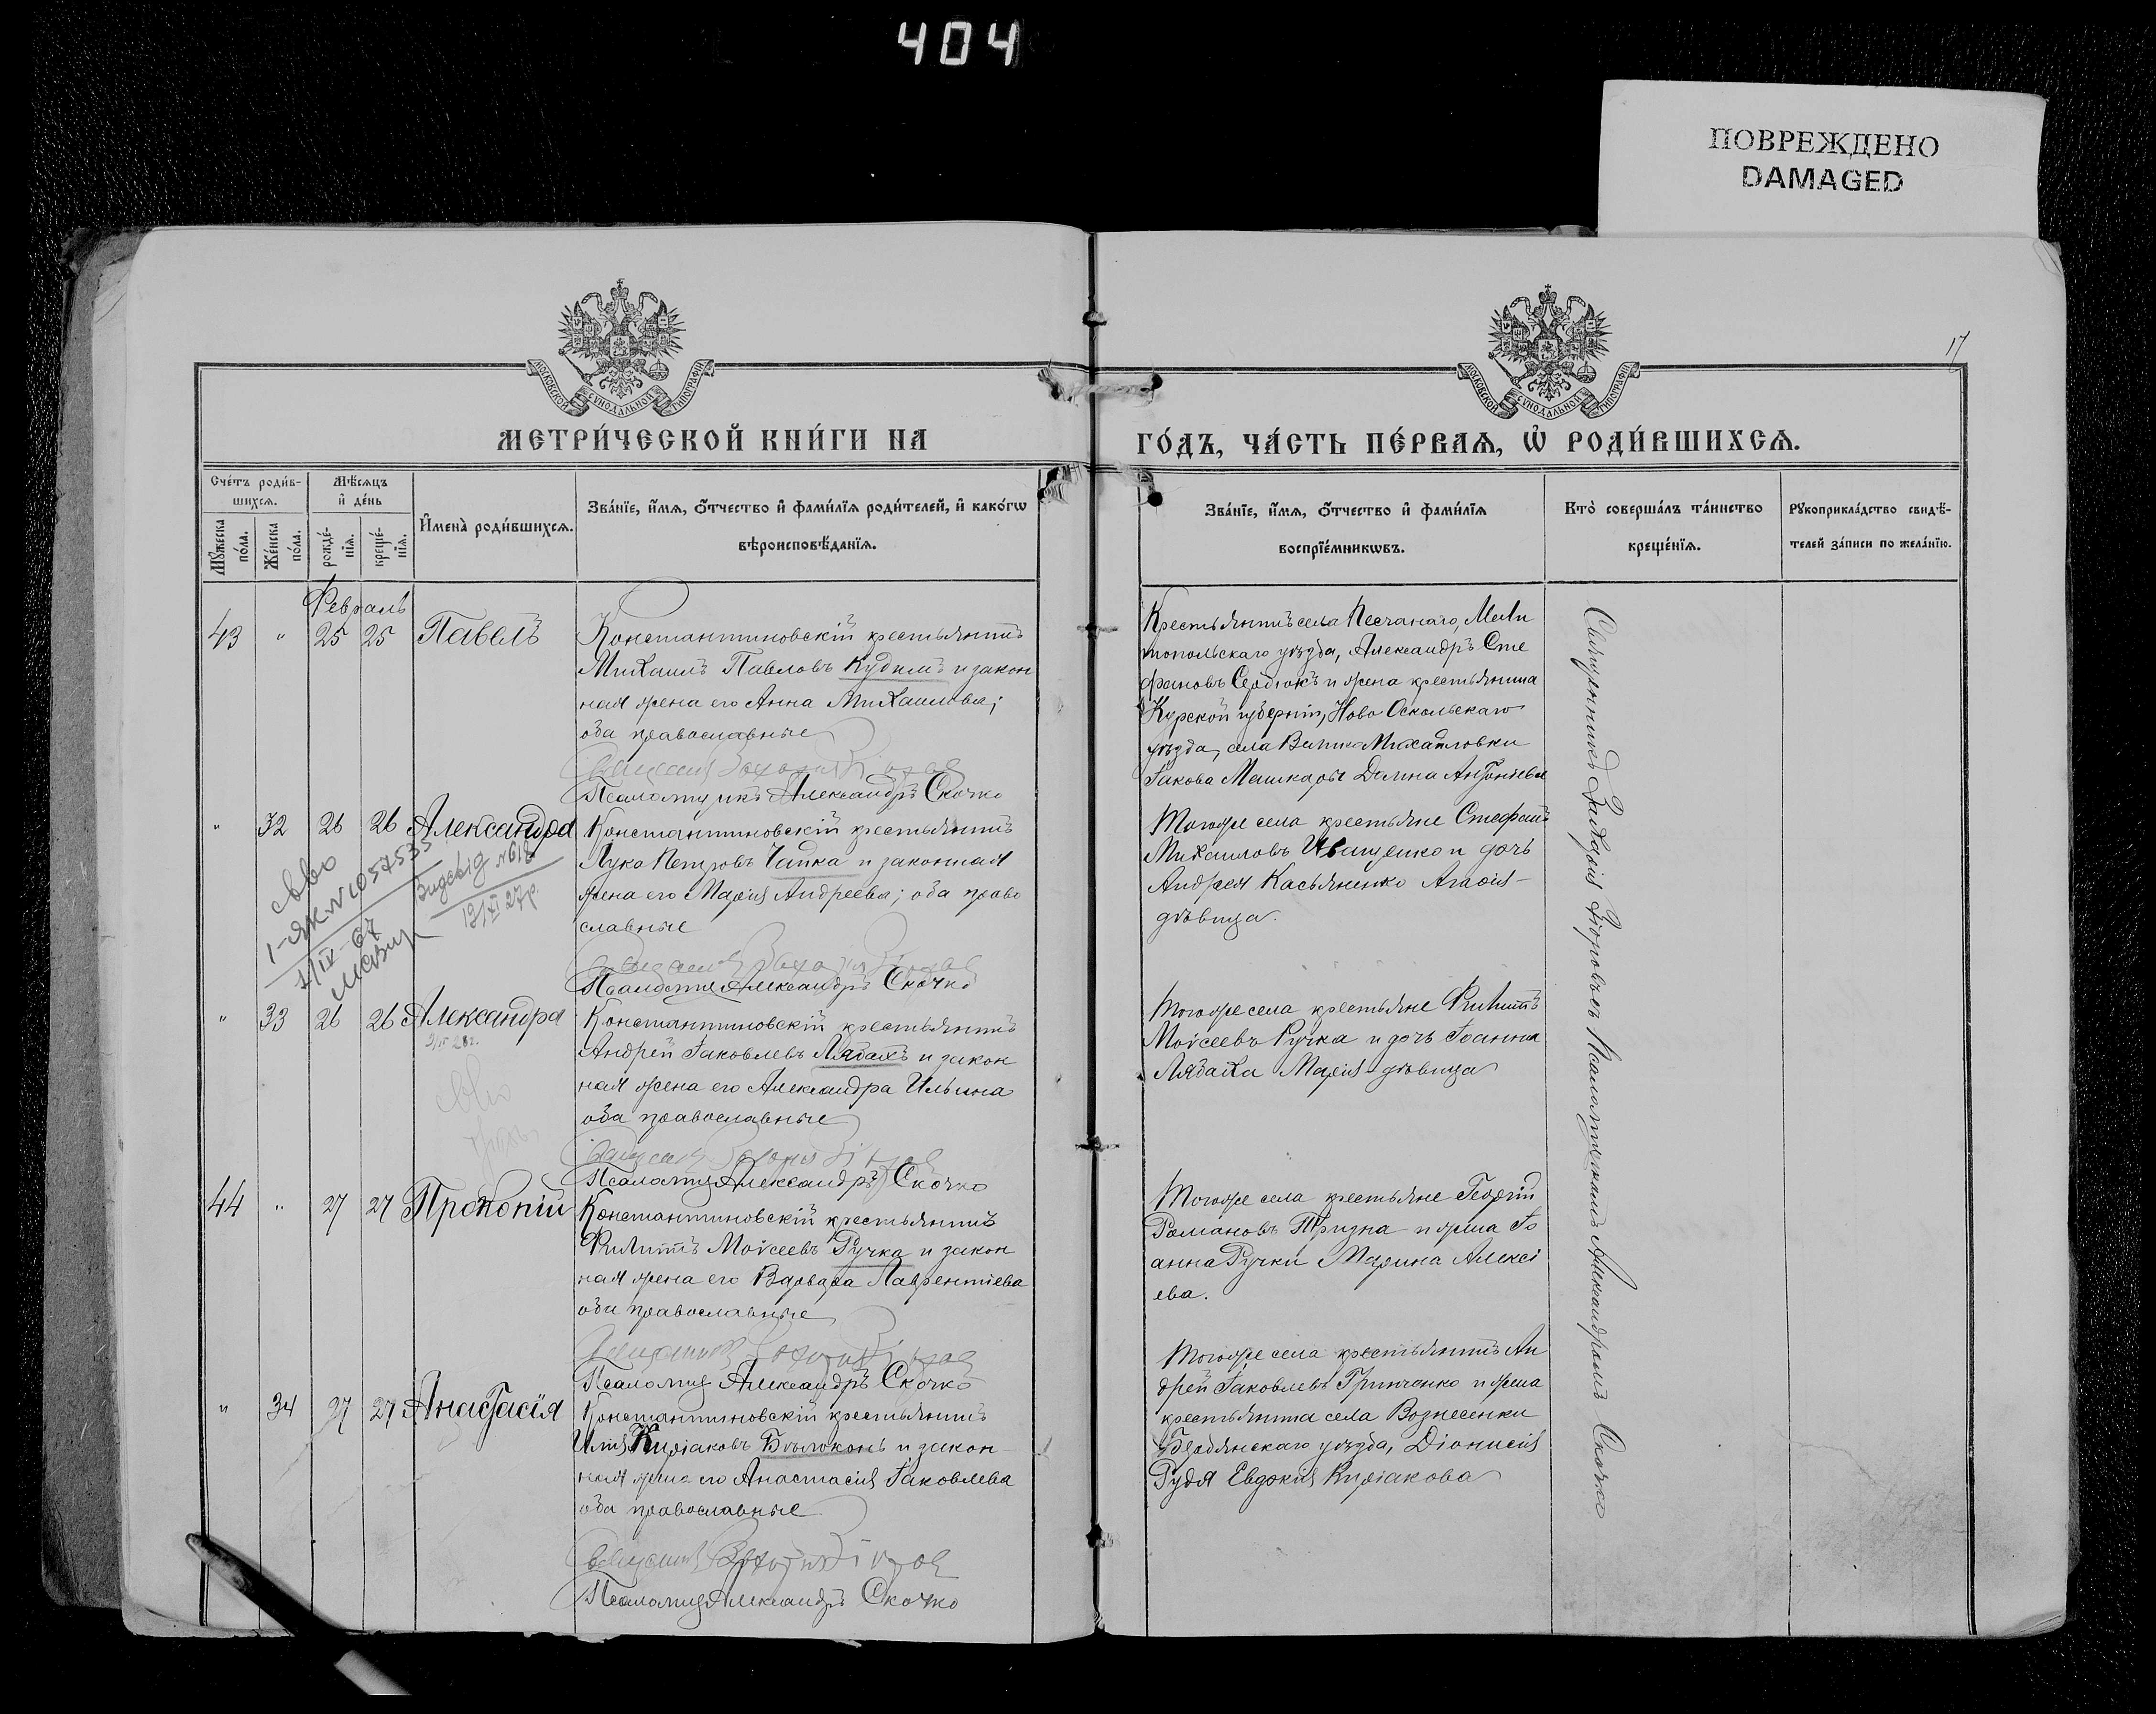 404
ПОВРЕЖДЕНО
DAMAGED
МОСКОВСКОЙ СѴНОДАЛЬНОЙ ТИПОГРАФІИ
МОСКОВСКОЙ СѴНОДАЛЬНОЙ ТИПОГРАФІИ
17
МЕТРИ́ЧЕСКОЙ КНИ́ГИ НА
ГО́ДЪ, ЧА́СТЬ ПЕ́РВАѦ, Ѡ҆ РОДИ́ВШИХСѦ.
Сче́тъ роди́в-
шихсѧ.
Мѣ́сѧцъ
и҆ де́нь
Мꙋ́жеска
по́ла.
Же́нска
по́ла.
рожде́-
нїѧ.
креще́-
нїѧ.
И҆мена̀ роди́вшихсѧ.
Зва́нїе, и҆́мѧ, ѻ҆́тчество и҆ фами́лїѧ роди́телей, и҆ како́гѡ
вѣроисповѣ́данїѧ.
Зва́нїе, и҆́мѧ, ѻ҆́тчество и҆ фами́лїѧ
воспрїе́мникѡвъ.
Кто̀ соверша́лъ та́инство
креще́нїѧ.
Рꙋкоприкла́дство свидѣ́-
телей за́писи по жела́нїю.
Февраль
43 " 25 25 Павелъ
Константиновскій крестьянинъ
Михаилъ Павловъ Кудимъ и закон
ная жена его Анна Михаилова;
оба православные
Священникъ Захарія
Псаломщикъ Александръ Скочко
Крестьянинъ села Песчанаго, Мели
топольскаго уѣзда, Александръ Сте
фановъ Сердюкъ и жена крестьянина
Курской губерніи, Ново Оскольскаго
уѣзда, села Велико Михайловки
Іакова Машкары Домна Антоніева
" 32 26 26 Александра
Константиновскій крестьянинъ
Лука Петровъ Чапка и законная
жена его Марія Андреева; оба право
славные
Священникъ Захарія
Псаломщ Александръ Скочко
свво
1-ЯК №1057535
7/IV-67
618
12/XI 27р.
Тогоже села крестьяне Стефанъ
Михаиловъ Иващенко и дочь
Андрея Касьяненко Агафія-
дѣвица.
" 33 26 26 Александра
Константиновскій крестьянинъ
Андрей Іаковлевъ Лябахъ и закон
ная жена его Александра Ильина
оба православные
Священникъ Захарія
Псаломщ Александръ Скочко
Тогоже села крестьяне Филиппъ
Моѵсеевъ Ручка и дочь Іоанна
Лябаха Марія дѣвица
44 " 27 27 Прокопій
Константиновскій крестьянинъ
Филиппъ Моѵсеевъ Ручка и закон
ная жена его Варвара Лаврентіева
оба православные
Священникъ Захарія
Псаломщ Александръ Скочко
Тогоже села крестьяне Георгій
Романовъ Тризна и жена Іо
анна Ручки Марина Алексі
ева.
" 34 27 27 Анастасія
Константиновскій крестьянинъ
Илія Киріаковъ Бѣлоконь и закон
ная жена его Анастасія Іаковлева
оба православные
Священникъ Захарія
Псаломщ Александръ Скочко
Тогоже села крестьянинъ Ан
дрей Іаковлевъ Гринченко и жена
крестьянина села Вознесенки
Бердянскаго уѣзда, Діонисія
Рудя Евдокія Киріакова
Священникъ Захарія съ Псаломщикомъ Александромъ Скочко